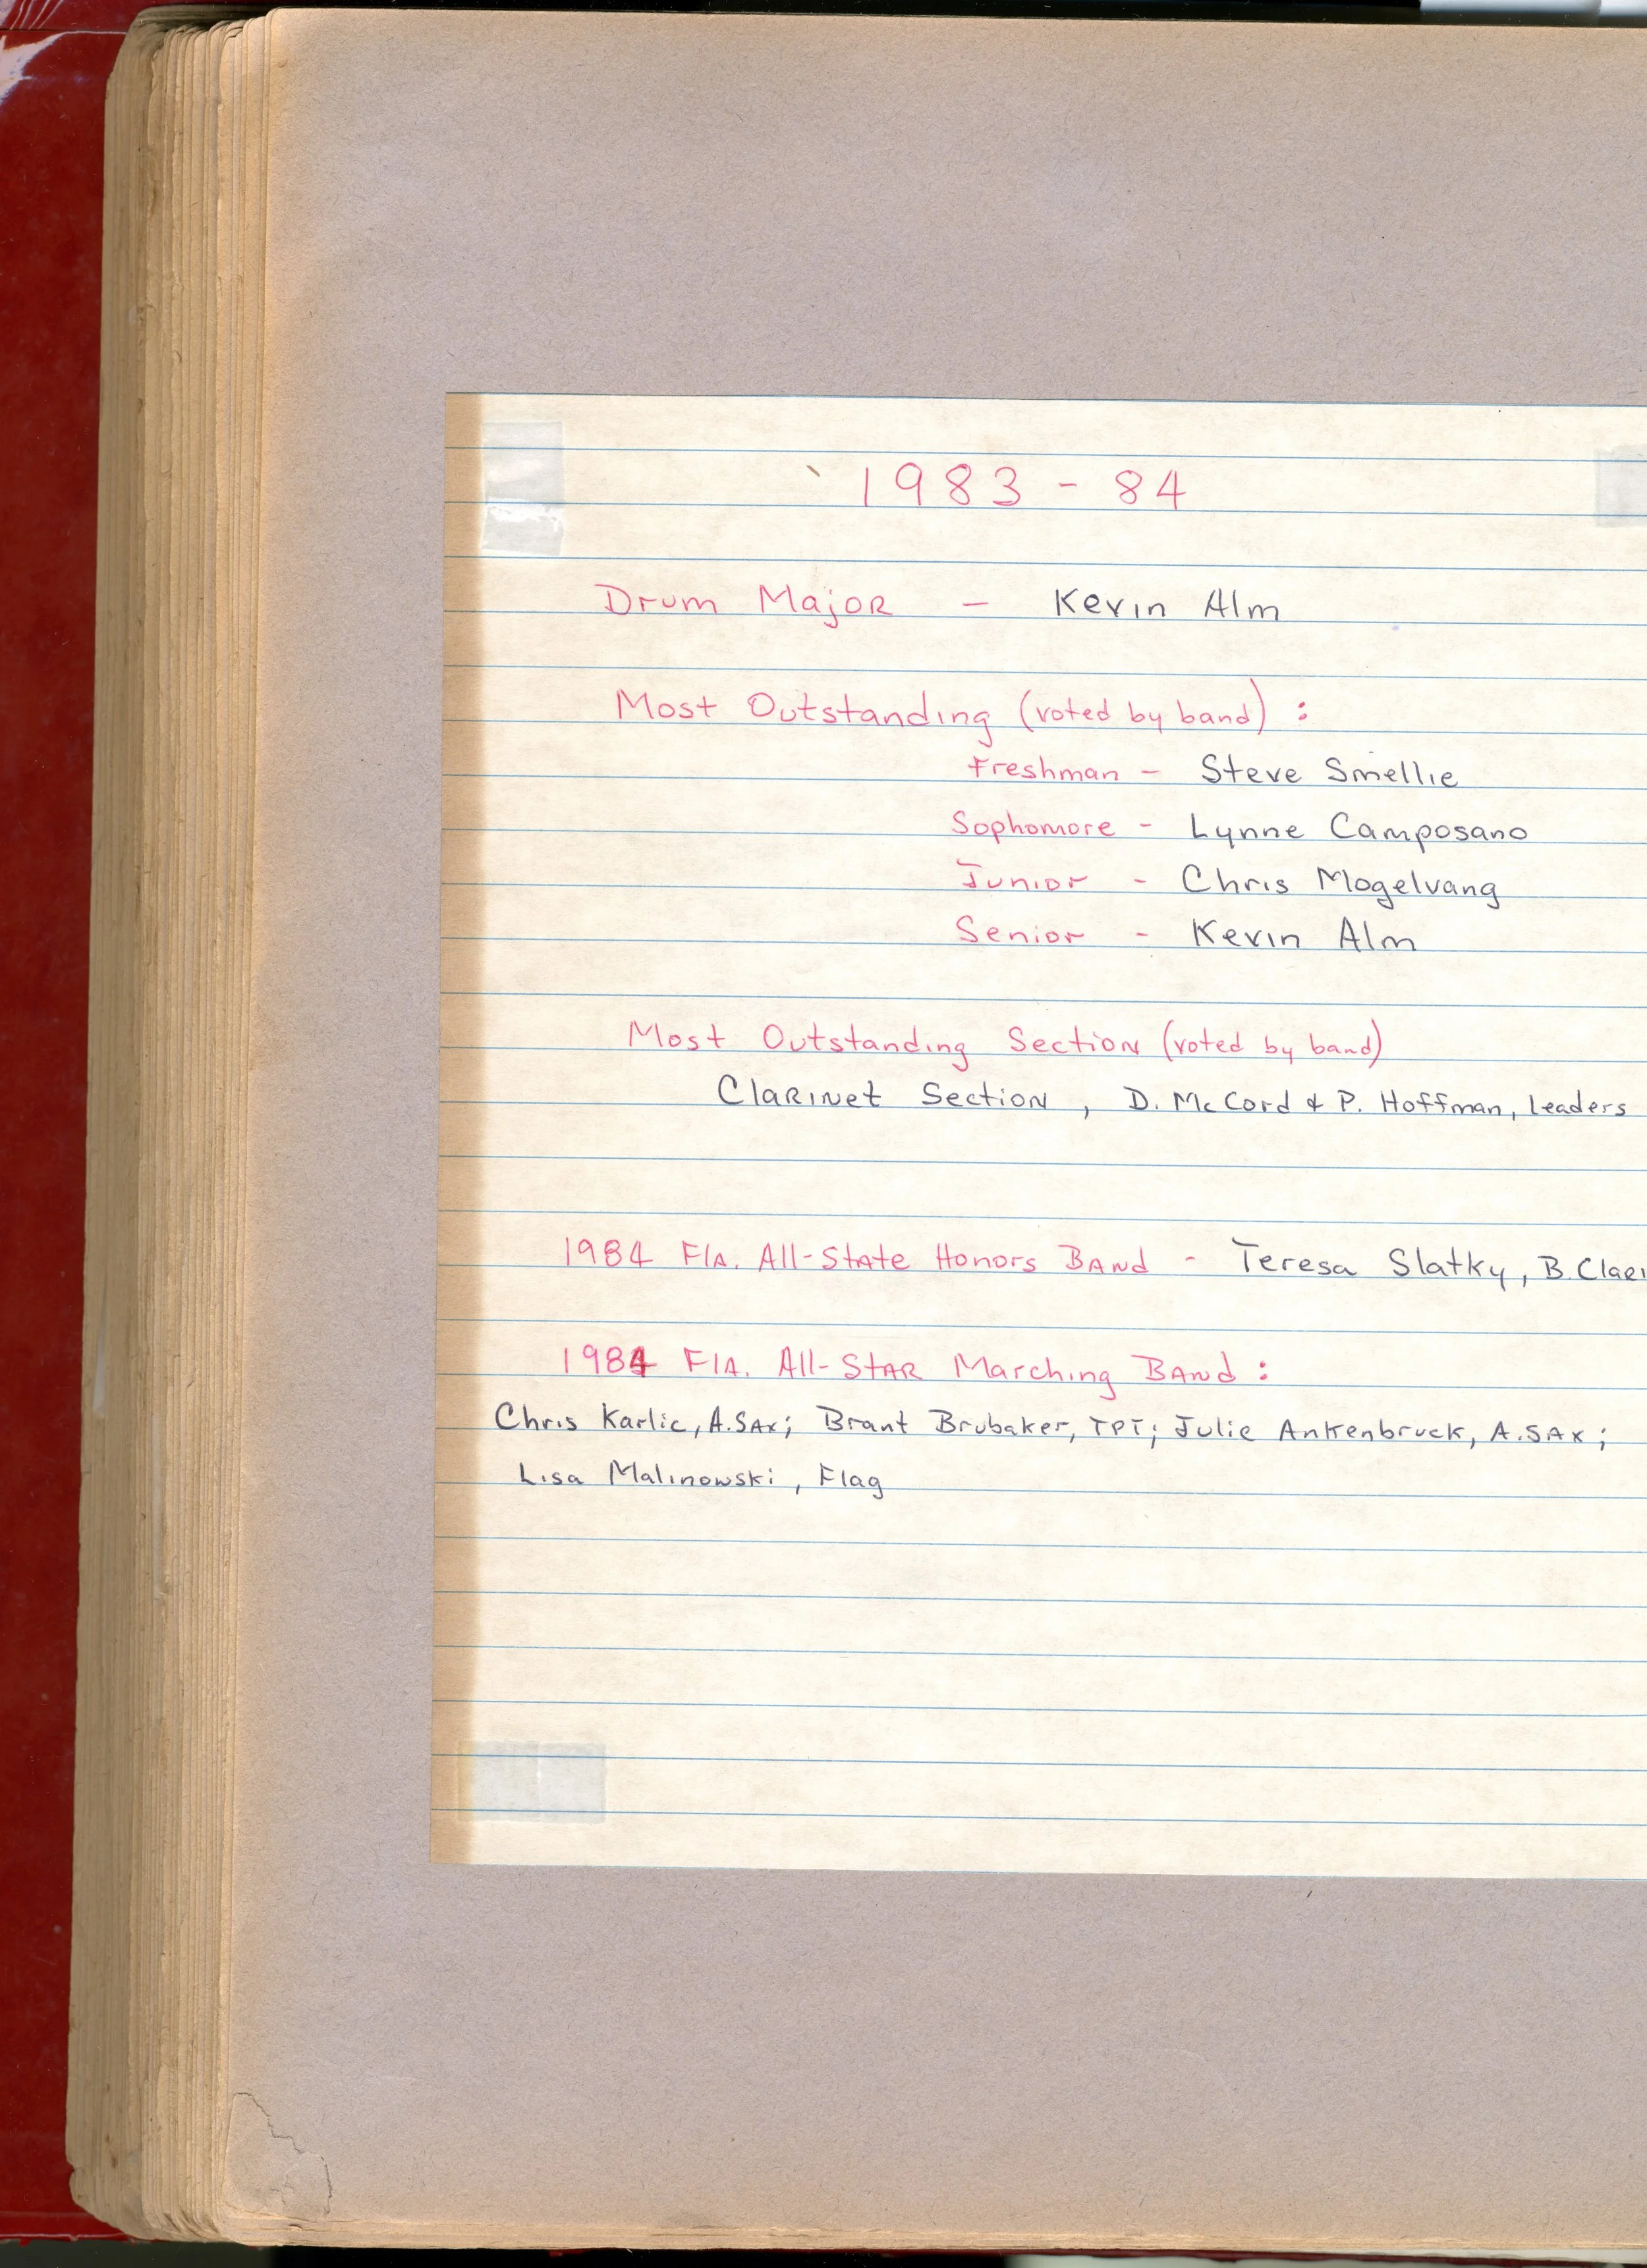 1983 - 84
Drum Major - Kevin Alm
Most Outstanding (voted by band) :
Freshman - Steve Smellie
Sophomore - Lynne Camposano
Junior - Chris Mogelvang
Senior - Kevin Alm
Most Outstanding Section (voted by band)
Clarinet Section , D. McCord & P. Hoffman, Leaders
1984 Fla. All-State Honors Band - Teresa Slatky, B. Clari
1984 Fla. All-Star Marching Band :
Chris Karlic, A.Sax; Brant Brubaker, TPT; Julie Ankenbruck, A.Sax;
Lisa Malinowski, Flag